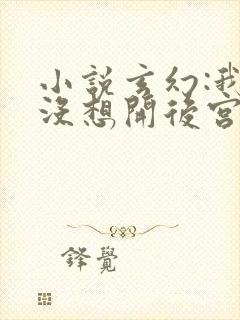 小說玄幻:我
沒想開後宮
鋒覺